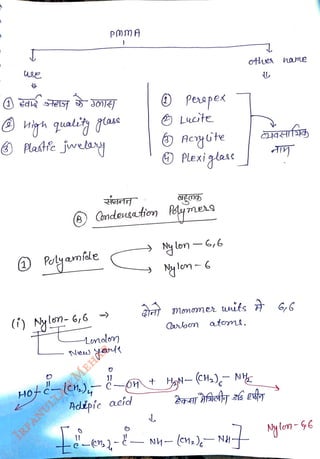 PMMA
use
other name
① हवाई जहाज के ग्लास
② High quality glass
③ Plastic jwelary
① Perspex
② Lucite
③ Acrylite
④ Plexiglass
व्यवसायिक
नाम
संघनन बहुलक
Ⓑ Condensation Polymers
① Polyamide
Nylon-6,6
Nylon-6
(i) Nylon-6,6 → दोनो monomer units में 6,6
Carbon atoms.
London
New York
HO-C-(CH₂)₄-C-OH + H₂N-(CH₂)₆-NH₂
O O
Adipic acid
O O
[-C-(CH₂)₄-C-NH-(CH₂)₆-NH-]
Nylon-66